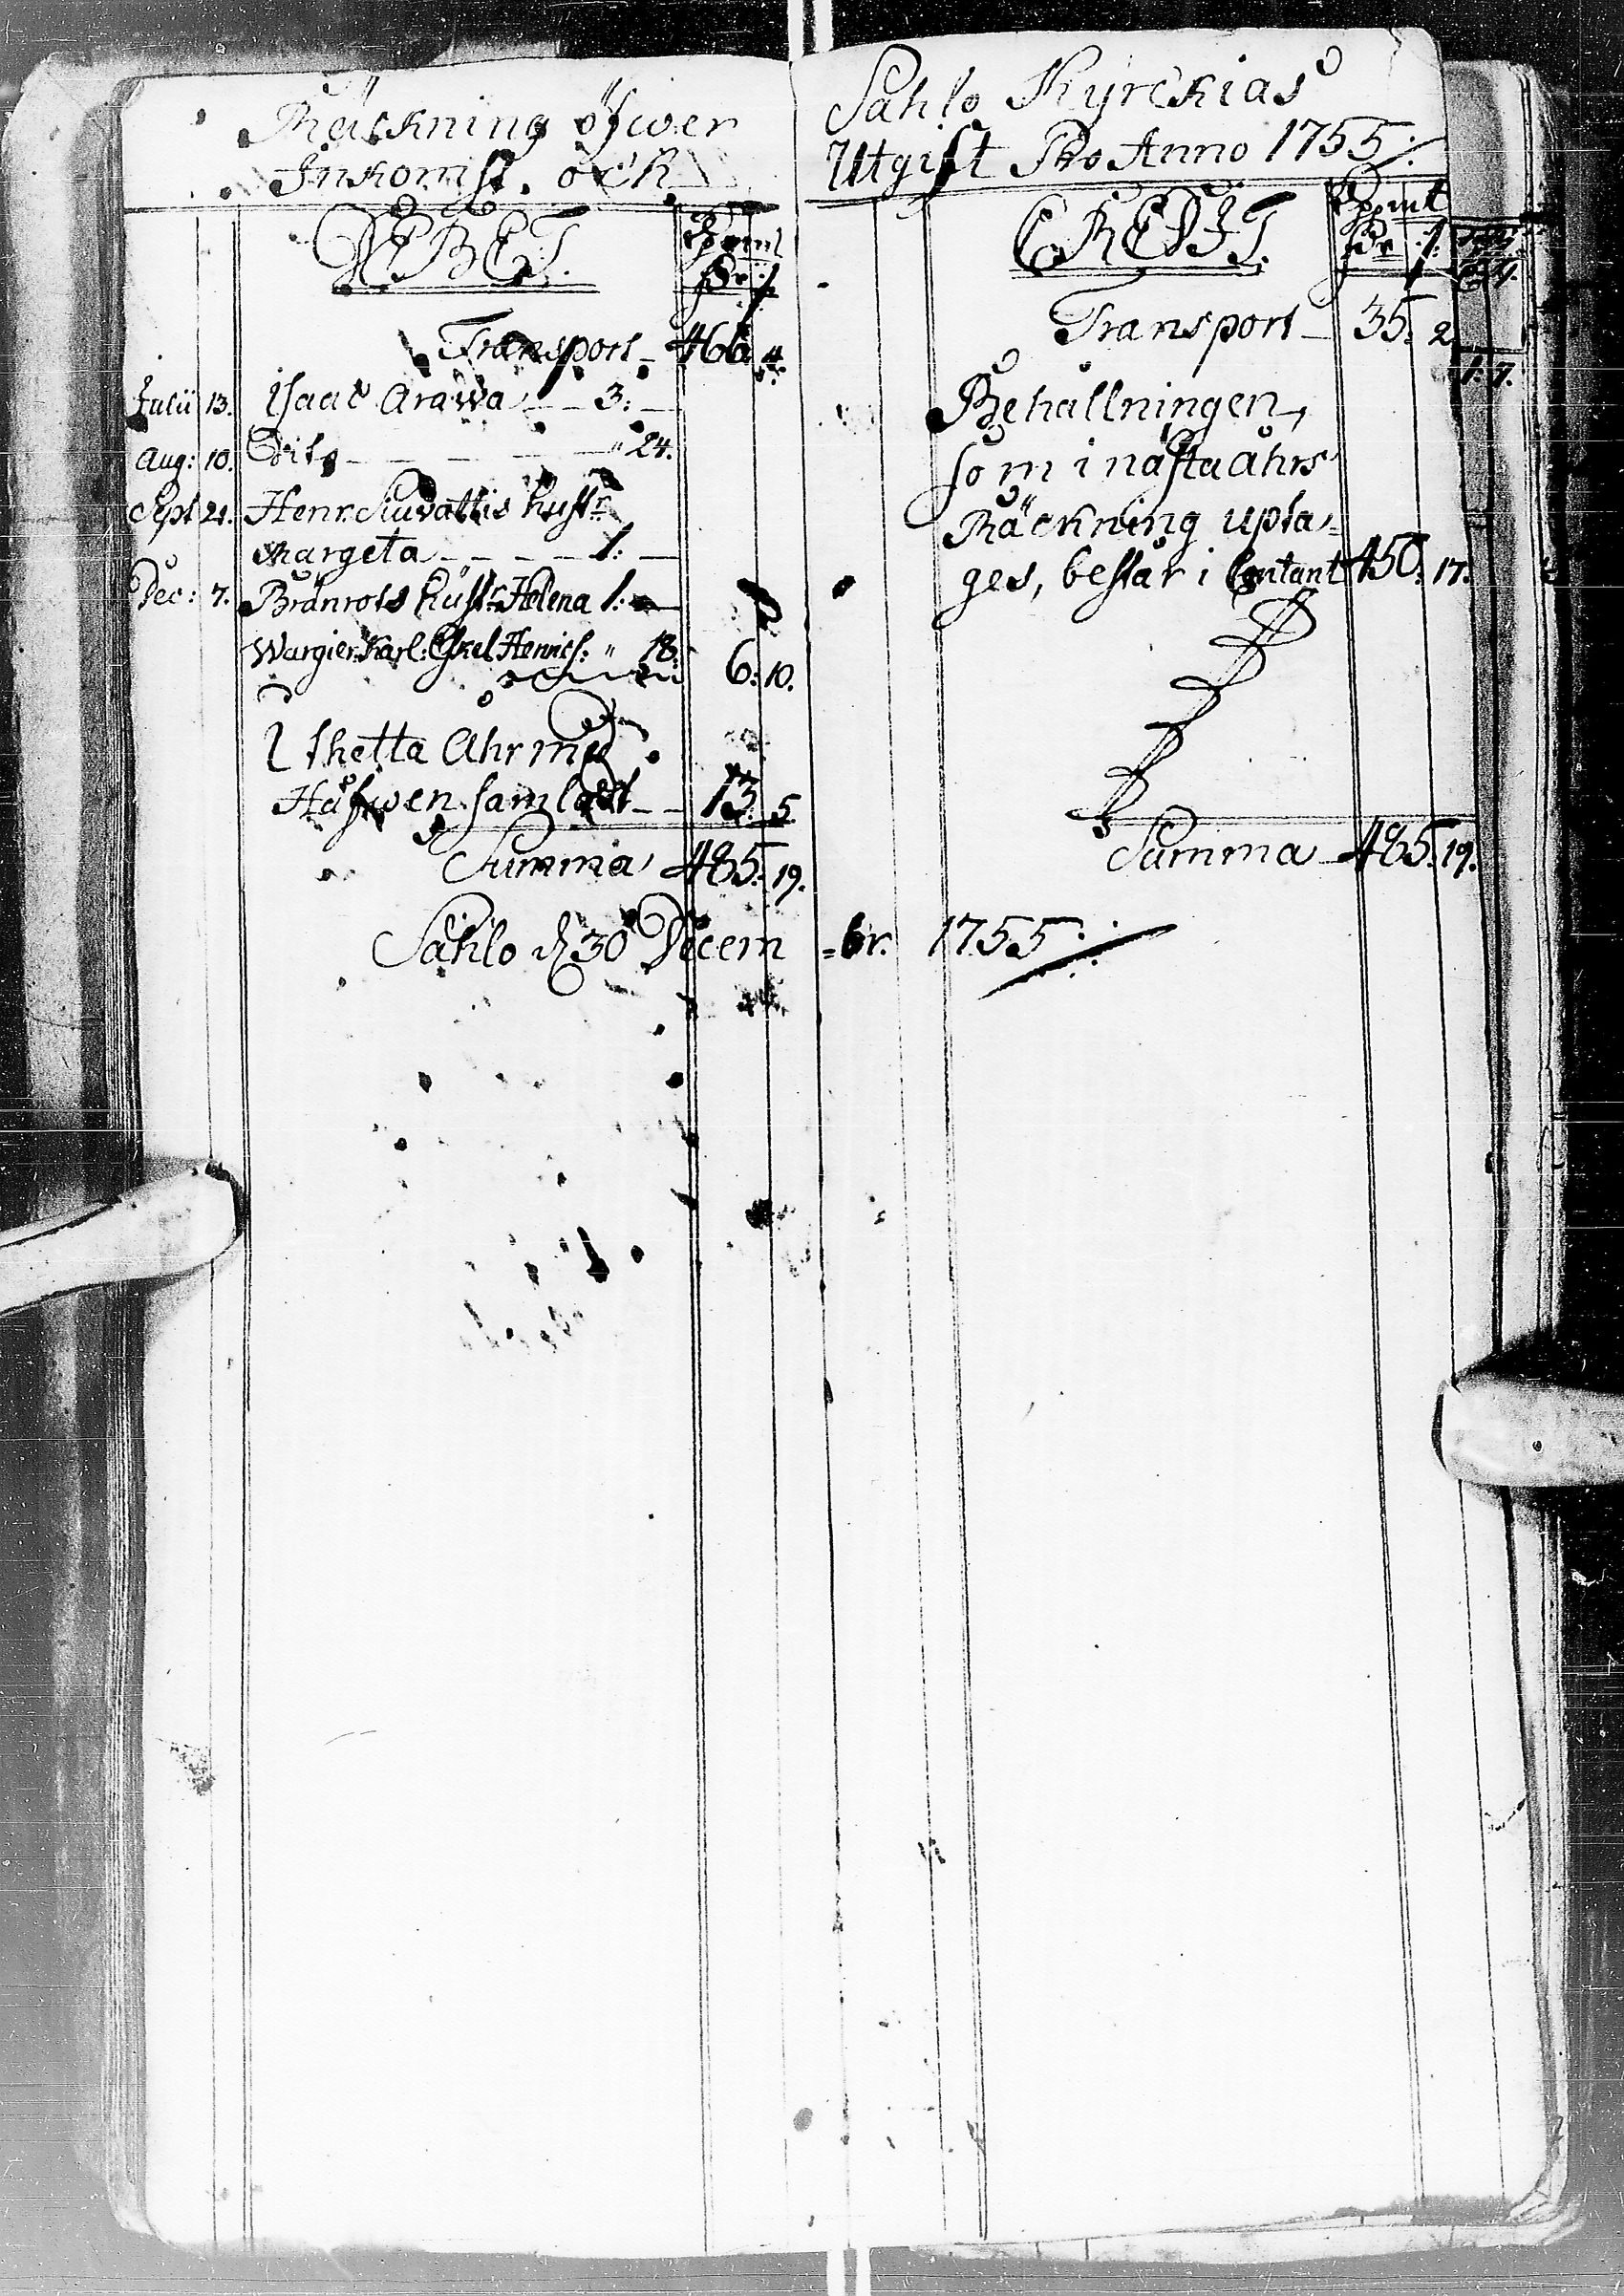 Räckning öfwer
Inkomst. och
DEBET.
Transport — 466. 4.
Julii 13. Isaac Arawa — 3: —
Aug: 10. Dito — — — — — " 24.
Sept 21. Henr. Siuvattis hustr
Margeta — — — — 1: —
Dec: 7. Bränrots hustr Helena 1: —
Wargier: Karl: Eskel Henrics: " 18: 6: 10.
I thetta Åhr med
Håfwen samladt — — 13. 5.
Summa 485. 19.
Sahlo d 30 Decem
Sahlo Kyrckias
Utgift Pro Anno 1755:
CREDIT.
Transport — 35. 2
Behållningen,
som i nästa åhrs
Räckning upta-
ges, består i Contant 450. 17.
Summa 485. 19.
=br. 1755:
1. 7.